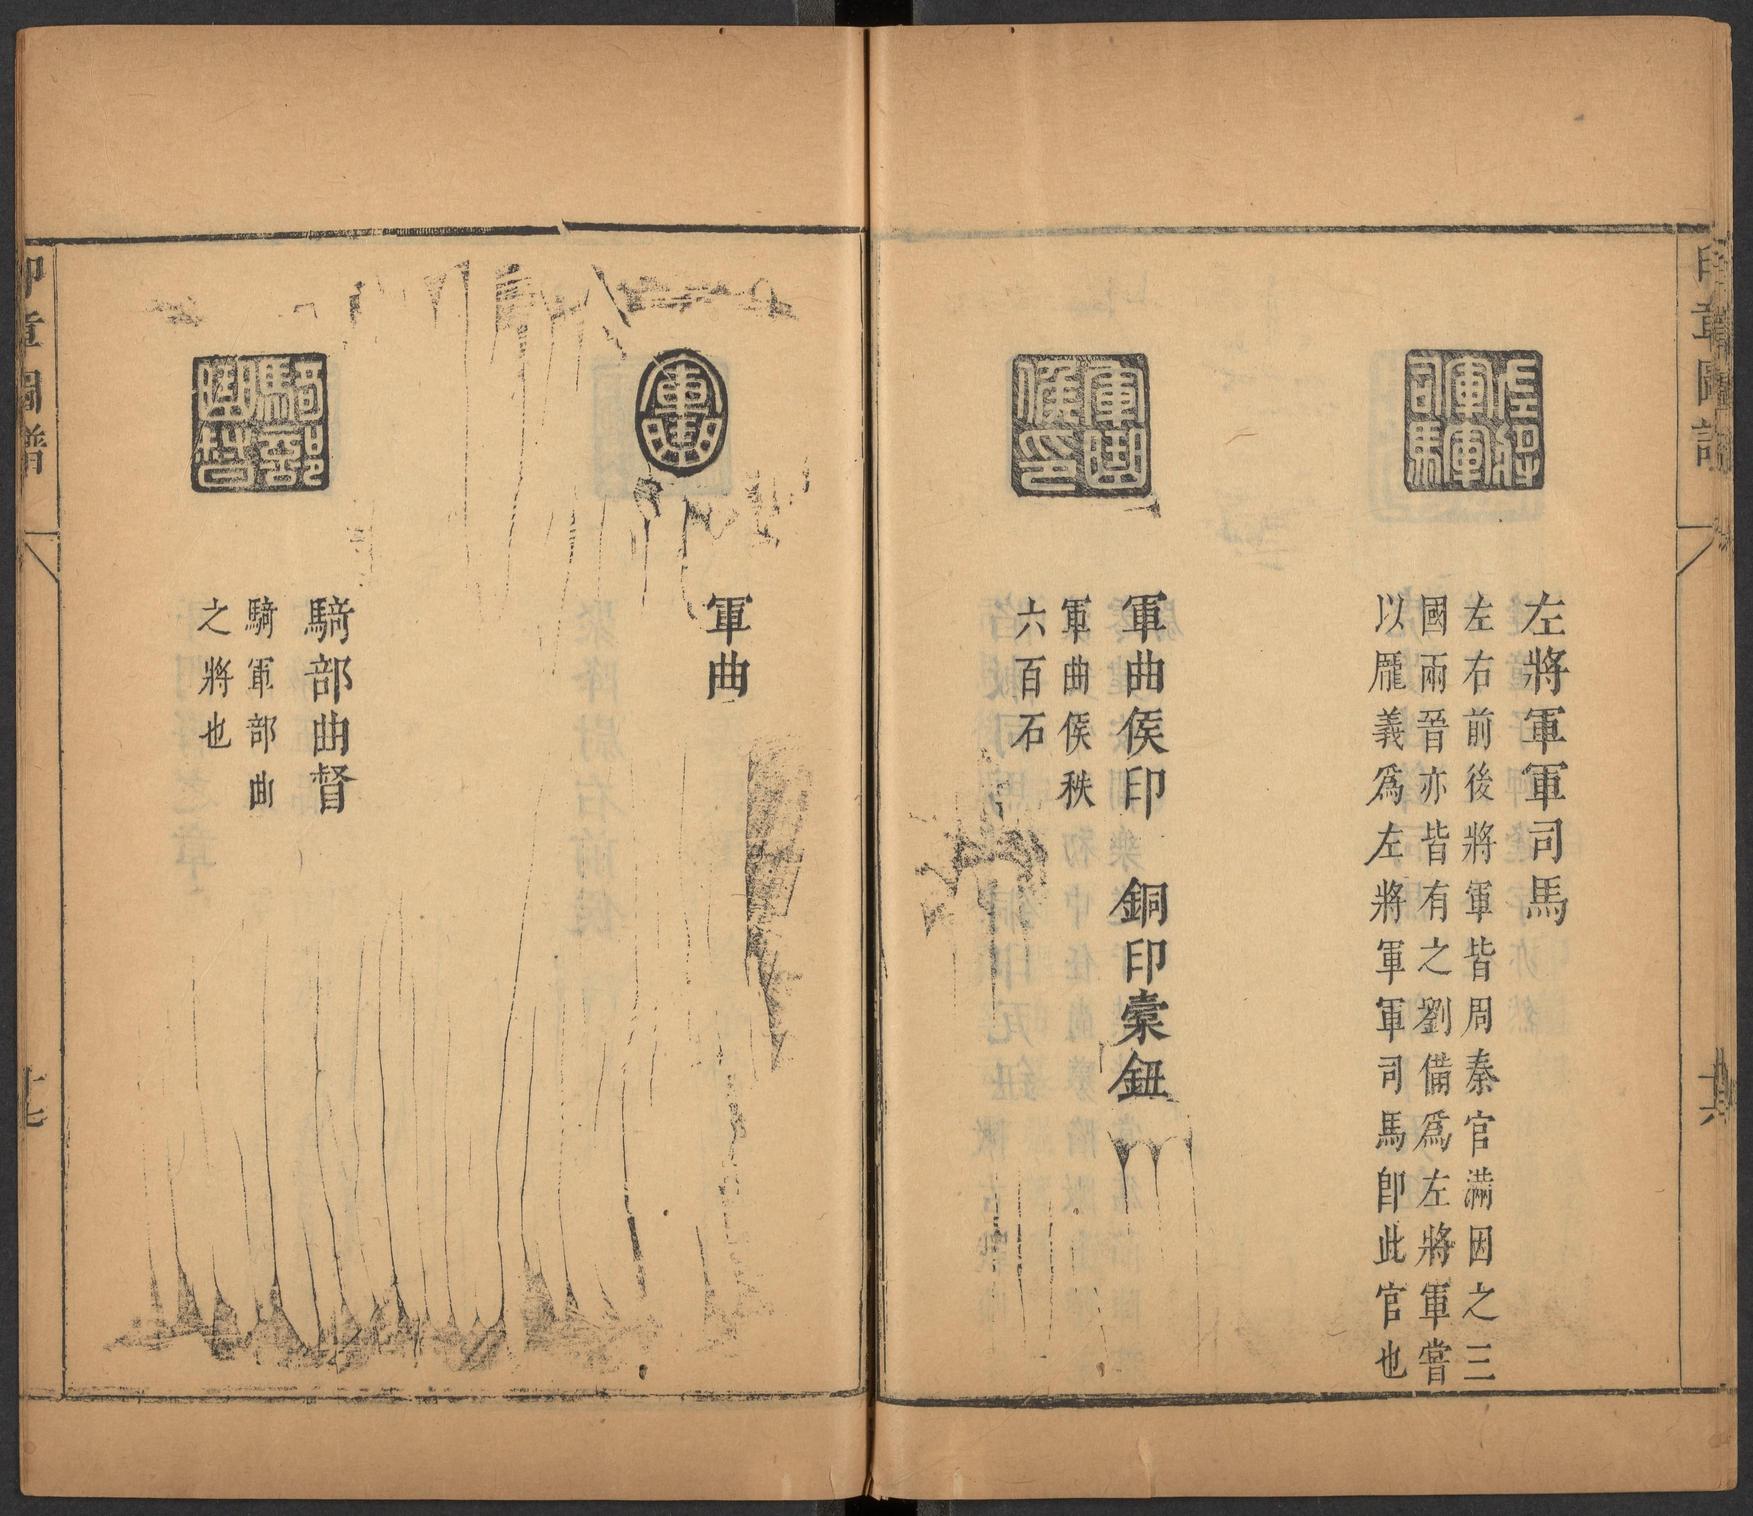 左將軍軍司馬
左右前後將軍皆周秦官滿因之三
國兩晉亦皆有之劉備爲左將軍嘗
以龎義爲左將軍軍司馬卽此官也
軍曲侯印 銅印橐鈕
軍曲侯秩
六百石
軍曲
騎部曲督
騎軍部曲
之將也
印章圖譜
十七